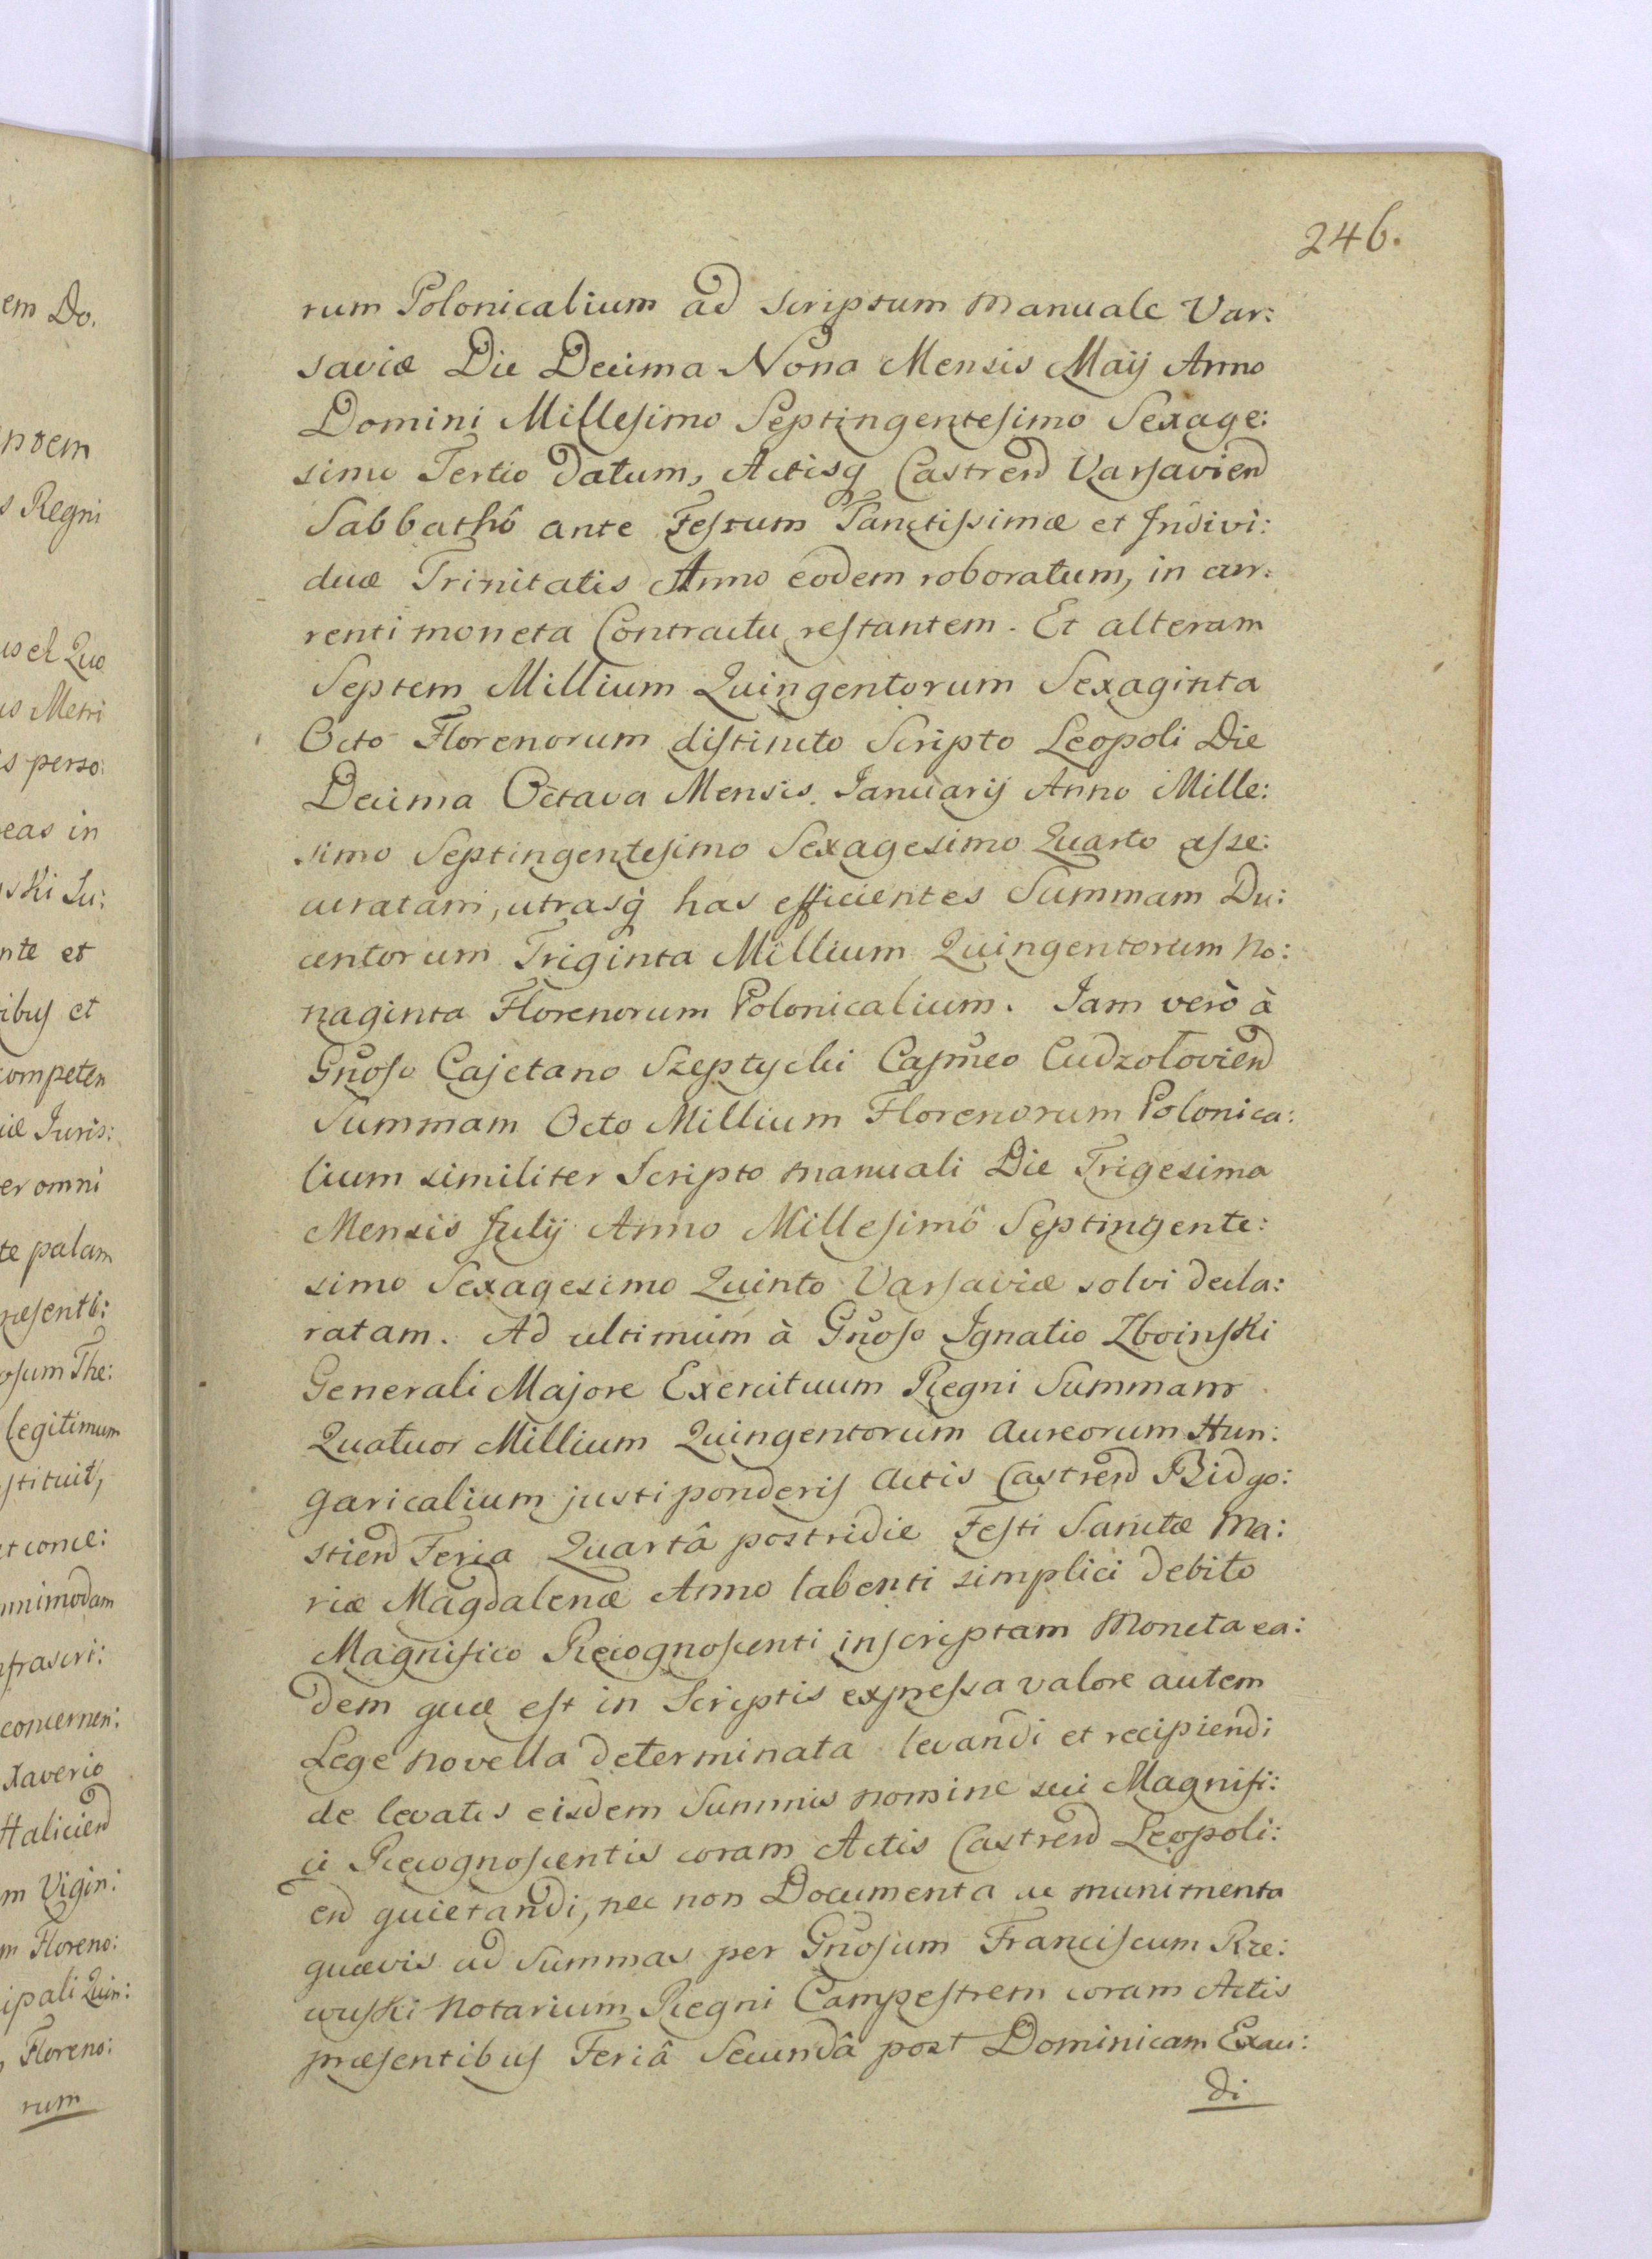 246.
rum Polonicalium ad scriptum manuale Var:
saviæ Die Decima Nona Mensis Maij Anno
Domini Millesimo Septingentesimo Sexage:
simo Tertio datum, Actisq Castren Varsavien
Sabbathô ante Festum Sanctissimæ et Indivi:
duæ Trinitatis Anno eodem roboratum, in cur:
renti moneta Contractu restantem. Et alteram
Septem Millium Quingentorum Sexaginta
Octo Florenorum distincto Scripto Leopoli Die
Decima Octava Mensis Januarij Anno Mille:
simo Septingentesimo Sexagesimo Quarto asse:
curatam, utrasq has efficientes Summam Du:
centorum Triginta Millium Quingentorum No:
naginta Florenorum Polonicalium. Jam verò à
Gnoso Cajetano Szeptycki Casñeo Cudzołovien
Summam Octo Millium Florenorum Polonica:
lium similiter Scripto manuali Die Trigesima
Mensis Julij Anno Millesimô Septingente:
simo Sexagesimo Quinto Varsaviæ solvi decla:
ratam. Ad ultimum à Gnoso Ignatio Zboinski
Generali Majore Exercituum Regni Summam
Quatuor Millium Quingentorum Aureorum Hun:
garicalium justi ponderis Actis Castren Bidgo:
stien Feria Quartâ postridie Festi Sanctæ Ma:
riæ Magdalenæ Anno labenti simplici debito
Magnifico Recognoscenti inscriptam Moneta ea:
dem quæ est in Scriptis expressa valore autem
Lege novella determinata levandi et recipiendi
de levatis eisdem Summis nomine sui Magnifi:
ci Recognoscentis coram Actis Castren Leopoli:
en quietandi, nec non Documenta ac munimenta
quævis ad Summas per Gnosum Franciscum Rze:
wuski Notarium Regni Campestrem coram Actis
præsentibus Feriâ Secundâ post Dominicam Exau:
di
em Do.
s Regni
us et Quo
is Metri
s perso:
eas in
ski Su:
nte et
ibus et
competen
iæ Juris:
er omni
te palam
ræsenti:
osum The:
legitimum
stituit,
et conce:
mnimodam
nfrascri:
concernen:
Xaverio
Halicien
m Vigin:
m Floreno:
ipali Quin:
, Floreno:
rum